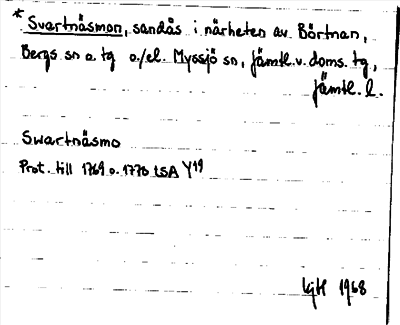 * Svartnäsmon, sandås i närheten av Börtnan,
Bergs sn o. tg o./el. Myssjö sn, Jämtl. v. doms. tg,
Jämtl. l.
Swartnäsmo
Prot. till 1769 o. 1770 LSA Y19
1968